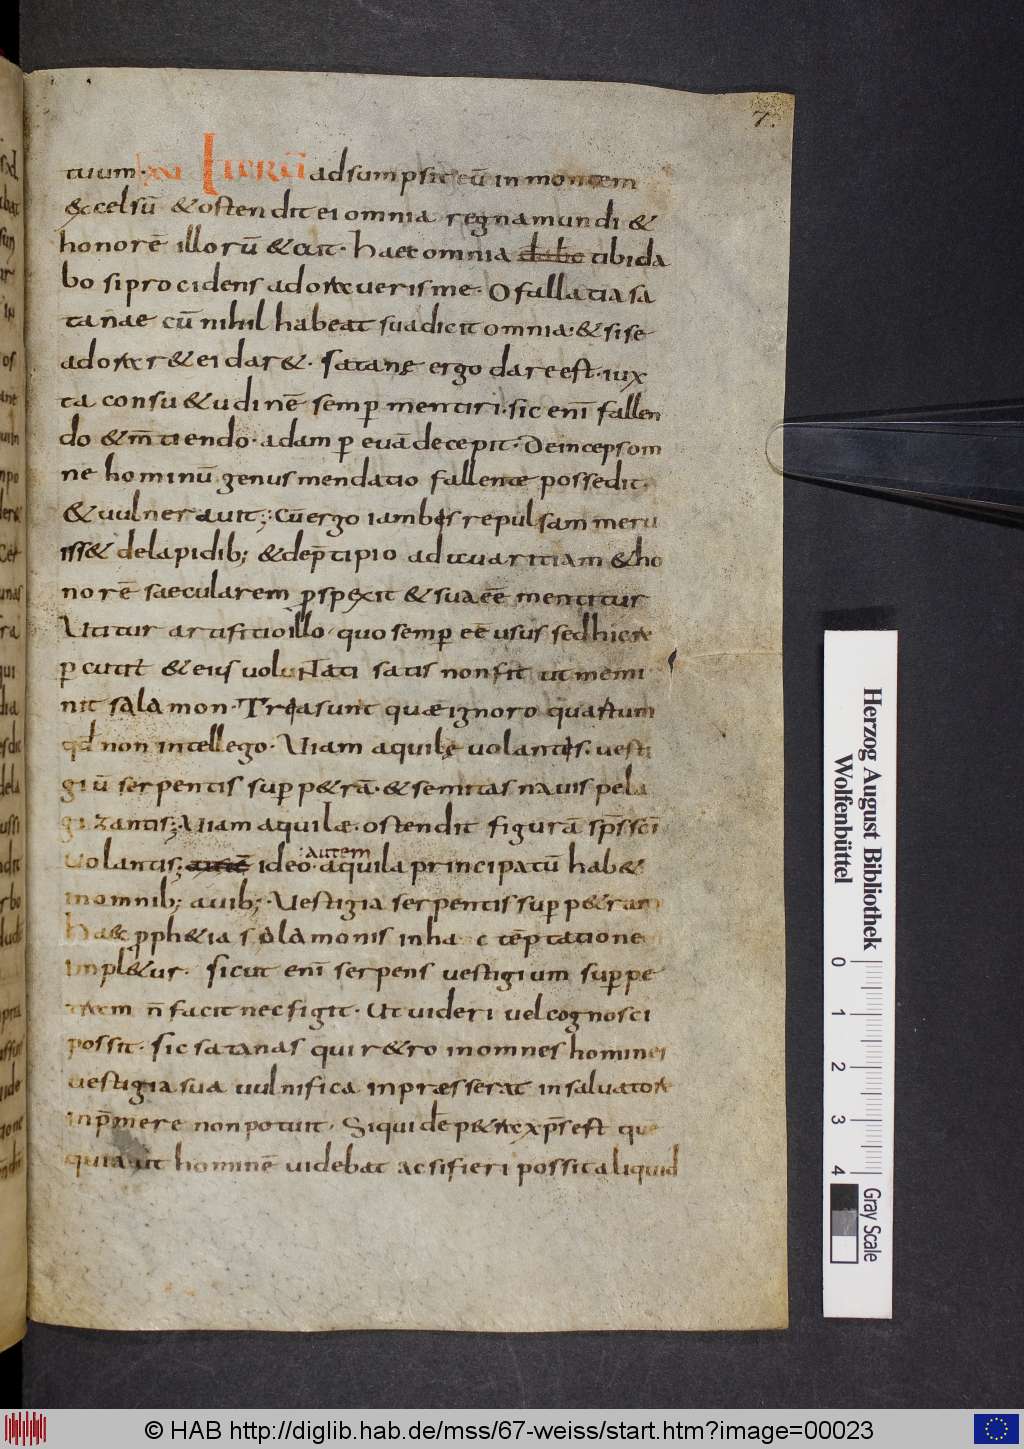 7.
tuum· xvi Iterū adsumpsit eū in montem
excelsū & ostendit ei omnia regna mundi &
honorē illorū & ait· haec omnia dabo tibi da
bo si procidens adoraveris me· O fallatia sa
tanae cū nihil habeat sua dicit omnia· & si se
adorar& ei dar&· satanę ergo dare est· iux
ta consu&udinē semp mentiri· sic enī fallen
do & m̄tiendo· adam p evā decepit· Deinceps om
ne hominū genus mendatio fallente possedit·
& vulneravit; Cū ergo iambis repulsam meru
iss& de lapidib; & de p̄tipio ad avaritiam & ho
norē saecularem pspexit & sua eē mentitur
Utitur artifitio illo· quo semp eē usus sed hic re
pcutit & eius voluntati satis non fit ut memi
nit salamon· Tria sunt quae ignoro quartum
qd non intellego· Viam aquilę volantis· vesti
giū serpentis sup p&rā· & semitas navis pela
gizantis; Viam aquilae· ostendit figurā sp̄s sc̄i
volantis; ideo· autem aquila principatū hab&
in omnib; avib;· Vestigia serpentis sup p&ram
haec pph&ia salamonis in hac tēptatione
impl&ur· sicut enī serpens vestigium sup pe
tram n̄ facit nec figit· Ut videri vel cognosci
possit· sic satanas qui r&ro in omnes homines
vestigia sua vulnifica inpraesserat in salvatore
inp̄mere non potuit· Siquidē p&ra xp̄s est que
quia ut hominē videbat ac si fieri possit aliquid
Herzog August Bibliothek
Wolfenbüttel
0 1 2 3 4
Gray Scale
© HAB http://diglib.hab.de/mss/67-weiss/start.htm?image=00023